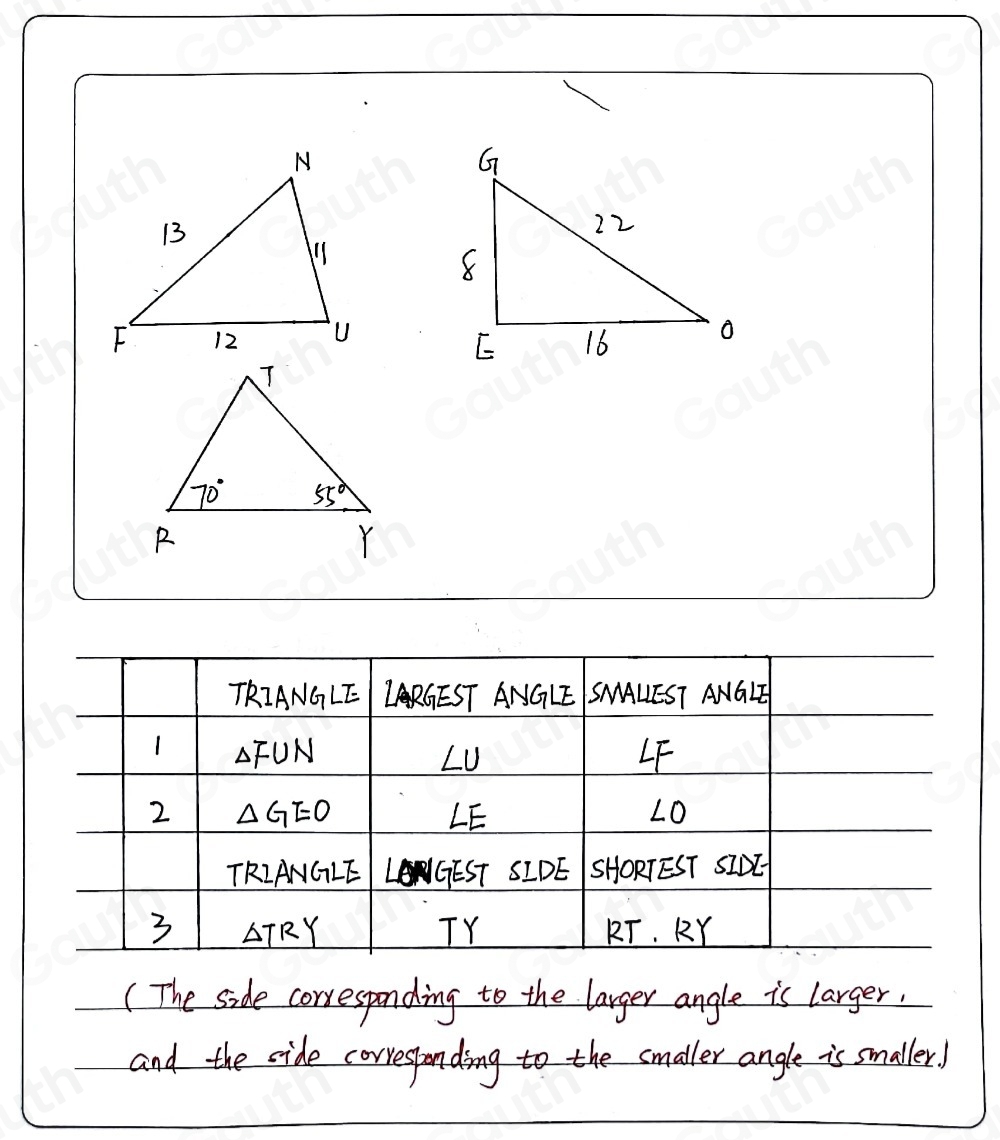 N
G
13
11
22
8
F
12
U
E
16
O
T
70°
55°
R
Y
TRIANGLE LARGEST ANGLE SMALLEST ANGLE
1 △FUN ∠U ∠F
2 △GEO ∠E ∠O
TRIANGLE LONGEST SIDE SHORTEST SIDE
3 △TRY TY RT. RY
(The side corresponding to the larger angle is larger,
and the side corresponding to the smaller angle is smaller.)
Gauth